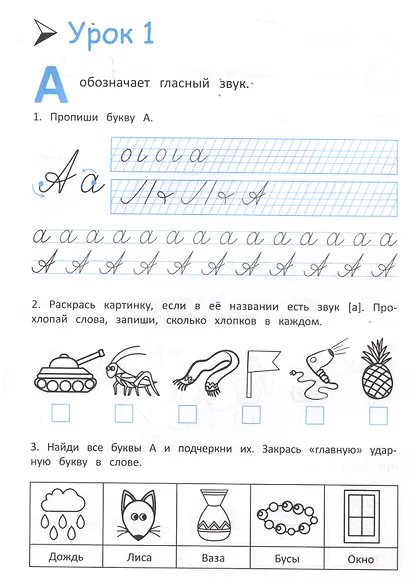 Урок 1
А обозначает гласный звук.
1. Пропиши букву А.
А а
а
А
а а а а а а а а а а а а а а
А А А А А А А А А А
2. Раскрась картинку, если в её названии есть звук [а]. Про-
хлопай слова, запиши, сколько хлопков в каждом.
3. Найди все буквы А и подчеркни их. Закрась «главную» удар-
ную букву в слове.
Дождь Лиса Ваза Бусы Окно